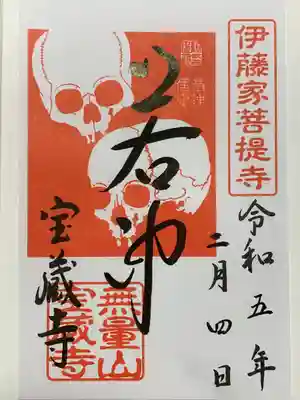 伊藤家菩提寺
令和五年
二月四日
若冲
宝蔵寺
無量山
宝蔵寺